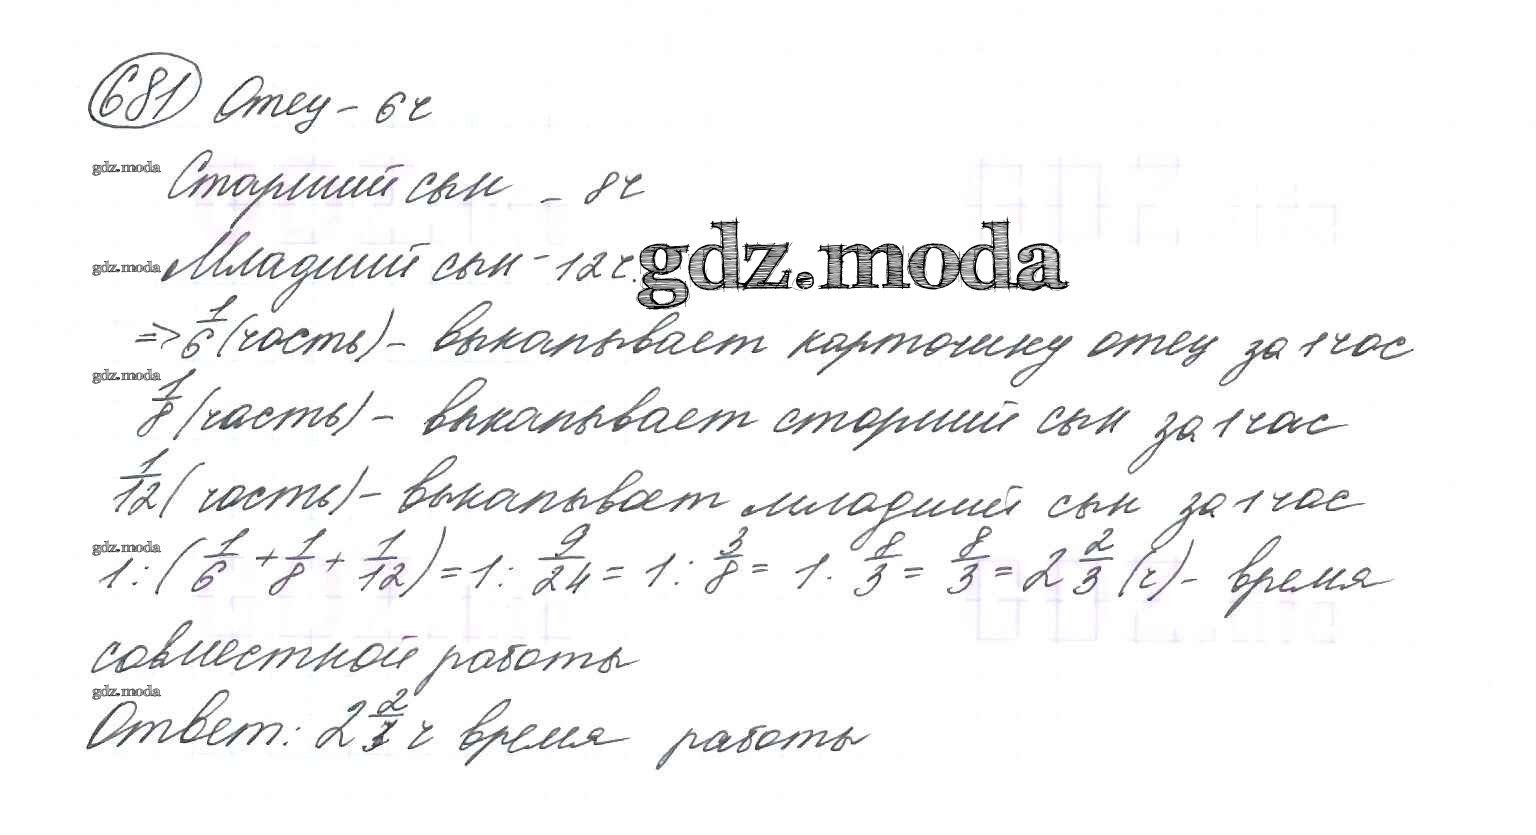 681 Отец - 6 ч
gdz.moda Старший сын - 8 ч
gdz.moda Младший сын - 12 ч. gdz.moda
=> 1/6 (часть) - выкапывает карточику отец за 1 час
gdz.moda
1/8 (часть) - выкапывает старший сын за 1 час
1/12 (часть) - выкапывает младший сын за 1 час
gdz.moda
1 : (1/6 + 1/8 + 1/12) = 1 : 9/24 = 1 : 3/8 = 1 · 8/3 = 8/3 = 2 2/3 (ч) - время
совместной работы
gdz.moda
Ответ: 2 2/3 ч время работы